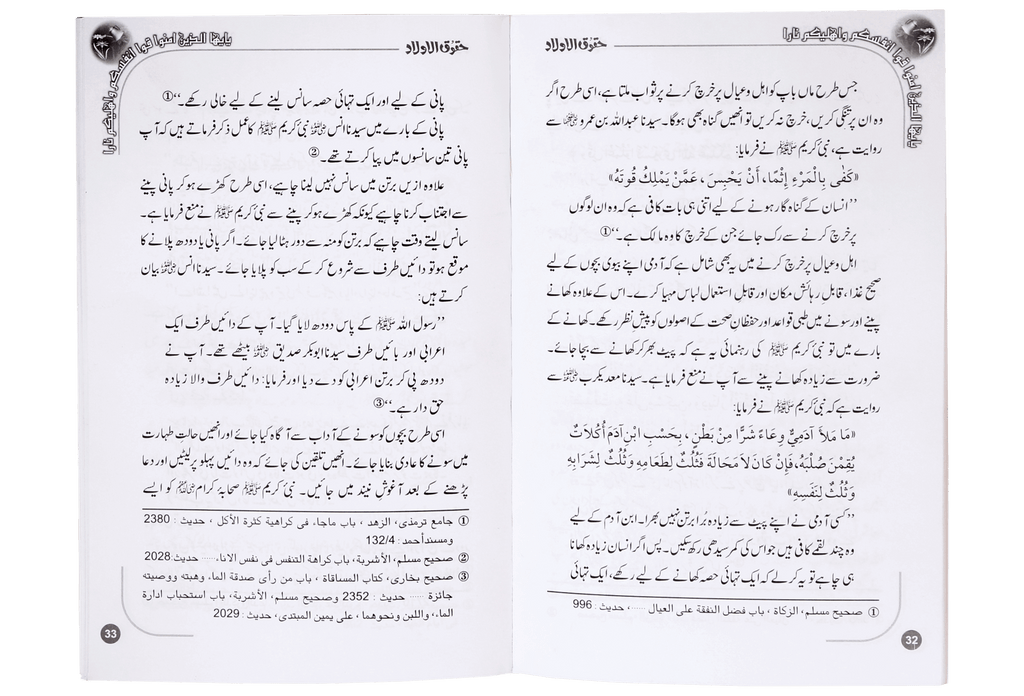 یایها الذین امنوا قوا انفسکم واهلیکم نارا
حقوق الاولاد
جس طرح ماں باپ کو اہل وعیال پر خرچ کرنے پر ثواب ملتا ہے، اسی طرح اگر
وہ ان پر تنگی کریں، خرچ نہ کریں تو انھیں گناہ بھی ہوگا۔ سیدنا عبداللہ بن عمرو رضی اللہ عنہ سے
روایت ہے، نبی کریم ﷺ نے فرمایا:
«كَفٰى بِالْمَرْءِ إِثْمًا، أَنْ يَحْبِسَ، عَمَّنْ يَمْلِكُ قُوتَهُ»
’’انسان کے گناہ گار ہونے کے لیے اتنی ہی بات کافی ہے کہ وہ ان لوگوں
پر خرچ کرنے سے رک جائے جن کے خرچ کا وہ مالک ہے۔‘‘①
اہل وعیال پر خرچ کرنے میں یہ بھی شامل ہے کہ آدمی اپنے بیوی بچوں کے لیے
صحیح غذا، قابلِ رہائش مکان اور قابلِ استعمال لباس مہیا کرے۔ اس کے علاوہ کھانے
پینے اور سونے میں طبی قواعد اور حفظانِ صحت کے اصولوں کو پیش نظر رکھے۔ کھانے کے
بارے میں تو نبی کریم ﷺ کی رہنمائی یہ ہے کہ پیٹ بھر کر کھانے سے بچا جائے۔
ضرورت سے زیادہ کھانے پینے سے آپ نے منع فرمایا ہے۔ سیدنا معدیکرب رضی اللہ عنہ سے
روایت ہے کہ نبی کریم ﷺ نے فرمایا:
«مَا مَلَأَ آدَمِيٌّ وِعَاءً شَرًّا مِنْ بَطْنٍ، بِحَسْبِ ابْنِ آدَمَ أُكُلَاتٌ
يُقِمْنَ صُلْبَهُ، فَإِنْ كَانَ لاَ مَحَالَةَ فَثُلُثٌ لِطَعَامِهِ وَثُلُثٌ لِشَرَابِهِ
وَثُلُثٌ لِنَفَسِهِ»
’’کسی آدمی نے اپنے پیٹ سے زیادہ بُرا برتن نہیں بھرا۔ ابن آدم کے لیے
وہ چند لقمے کافی ہیں جو اس کی کمر سیدھی رکھ سکیں۔ پس اگر انسان زیادہ کھانا
ہی چاہے تو یہ کر لے کہ ایک تہائی حصہ کھانے کے لیے رکھے، ایک تہائی
① صحیح مسلم، الزکاة ، باب فضل النفقة على العیال ......، حدیث : 996
32
یایها الذین امنوا قوا انفسکم واهلیکم نارا
حقوق الاولاد
پانی کے لیے اور ایک تہائی حصہ سانس لینے کے لیے خالی رکھے۔‘‘①
پانی کے بارے میں سیدنا انس رضی اللہ عنہ نبی کریم ﷺ کا عمل ذکر فرماتے ہیں کہ آپ
پانی تین سانسوں میں پیا کرتے تھے۔②
علاوہ ازیں برتن میں سانس نہیں لینا چاہیے، اسی طرح کھڑے ہو کر پانی پینے
سے اجتناب کرنا چاہیے کیونکہ کھڑے ہو کر پینے سے نبی کریم ﷺ نے منع فرمایا ہے۔
سانس لیتے وقت چاہیے کہ برتن کو منہ سے دور ہٹا لیا جائے۔ اگر پانی یا دودھ پلانے کا
موقع ہو تو دائیں طرف سے شروع کر کے سب کو پلایا جائے۔ سیدنا انس رضی اللہ عنہ بیان
کرتے ہیں:
’’رسول اللہ ﷺ کے پاس دودھ لایا گیا۔ آپ کے دائیں طرف ایک
اعرابی اور بائیں طرف سیدنا ابوبکر صدیق رضی اللہ عنہ بیٹھے تھے۔ آپ نے
دودھ پی کر برتن اعرابی کو دے دیا اور فرمایا: دائیں طرف والا زیادہ
حق دار ہے۔‘‘③
اسی طرح بچوں کو سونے کے آداب سے آگاہ کیا جائے اور انھیں حالتِ طہارت
میں سونے کا عادی بنایا جائے۔ انھیں تلقین کی جائے کہ وہ دائیں پہلو پر لیٹیں اور دعا
پڑھنے کے بعد آغوشِ نیند میں جائیں۔ نبی کریم ﷺ صحابۂ کرام رضی اللہ عنہم کو ایسے
① جامع ترمذی، الزهد ، باب ماجاء فی کراهیة کثرة الأکل ، حدیث : 2380
ومسند أحمد : 132/4
② صحیح مسلم، الأشربة، باب کراهة التنفس فی نفس الاناء...... حدیث:2028
③ صحیح بخاری، کتاب المساقاة ، باب من رأى صدقة الماء وهبته ووصیته
جائزة ...... حدیث : 2352 وصحیح مسلم، الأشربة، باب استحباب ادارة
الماء واللبن ونحوهما ، على یمین المبتدی، حدیث : 2029
33